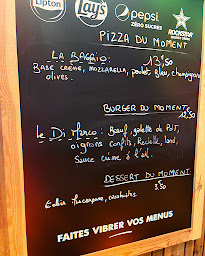 Lipton
Lay's
pepsi
ZÉRO SUCRES
ROCKSTAR
PIZZA DU MOMENT
13,50
Base crème, mozzarella, poulet, Bleu, champignons
olives.
BURGER DU MOMENT
12,50
Le Di Marco: Bœuf, galette de P.d.T,
oignons confits, Raclette, lard,
Sauce crème à l'ail.
DESSERT DU MOMENT
3,50
FAITES VIBRER VOS MENUS